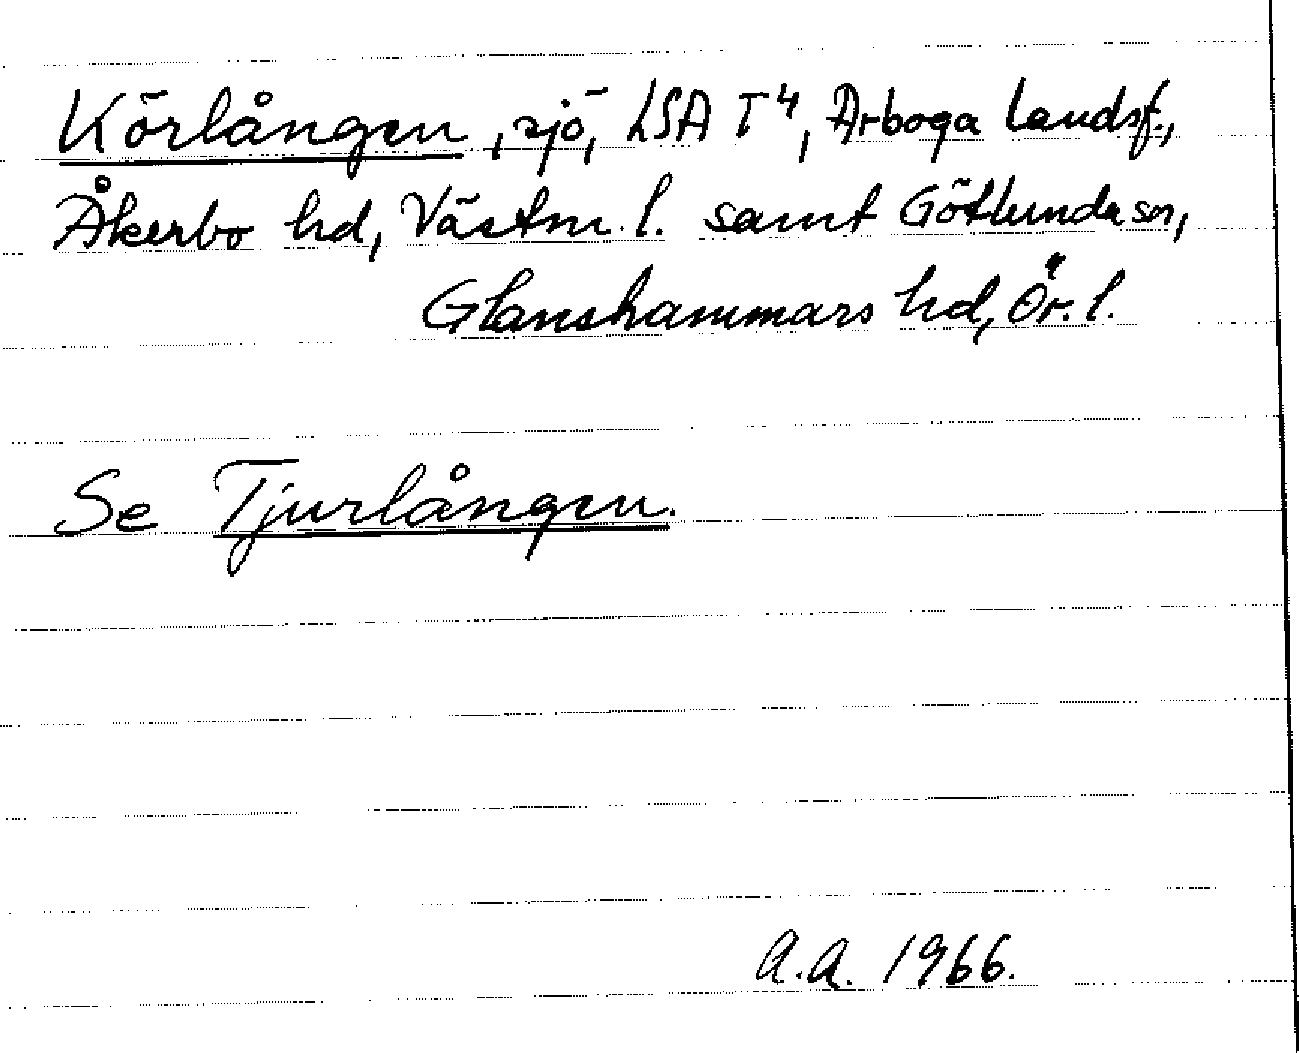 Körlången, sjö, LSA T⁴, Arboga landsf.,
Åkerbo hd, Västm. l. samt Götlunda sn,
Glanshammars hd, Ör. l.
Se Tjurlången.
A.A. 1966.